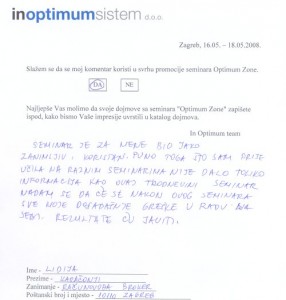 inoptimumsistem d.o.o.
Zagreb, 16.05. - 18.05.2008.
Slažem se da se moj komentar koristi u svrhu promocije seminara Optimum Zone.
DA NE
Najljepše Vas molimo da svoje dojmove sa seminara "Optimum Zone" zapišete
ispod, kako bismo Vaše impresije uvrstili u katalog dojmova.
In Optimum team
SEMINAR JE ZA MENE BIO JAKO
ZANIMLJIV I KORISTAN. PUNO TOGA ŠTO SAM PRIJE
UČILA NA RAZNIM SEMINARIMA NIJE DALO TOLIKO
INFORMACIJA KAO OVAJ TRODNEVNI SEMINAR
NADAM SE DA ĆE SE NAKON OVOG SEMINARA
SVE MOJE DOSADAŠNJE GREŠKE U RADU
REZULTATE ĆU JAVITI.
Ime - LIDIJA
Prezime -
Zanimanje - RAČUNOVOĐA BROKER
Poštanski broj i mjesto - 10110 ZAGREB